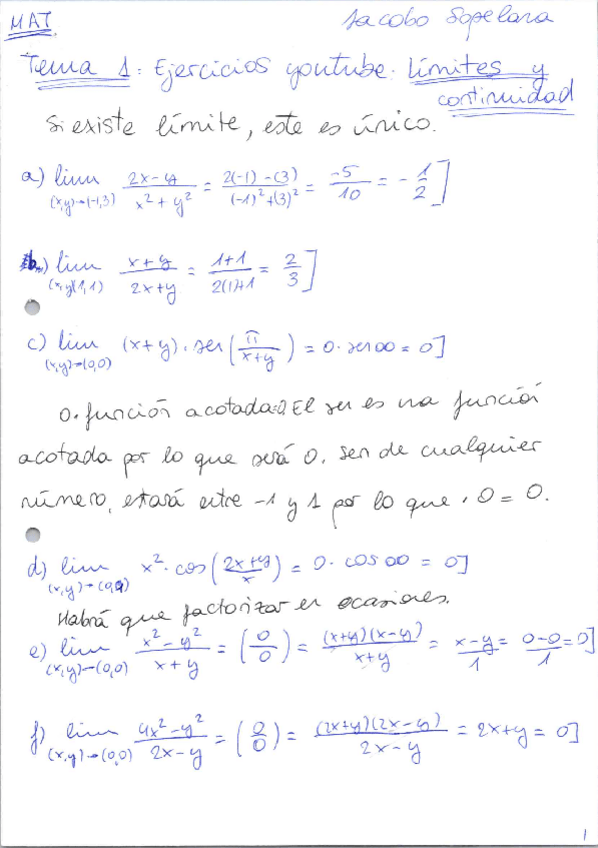 MAT
Jacobo Sopelana
Tema 1: Ejercicios youtube: límites y
continuidad
Si existe límite, este es único.
a) lim (x,y)→(-1,3) (2x-y)/(x²+y²) = (2(-1)-(3))/((-1)²+(3)²) = -5/10 = -1/2]
b) lim (x,y)(1,1) (x+y)/(2x+y) = (1+1)/(2(1)+1) = 2/3]
c) lim (x,y)→(0,0) (x+y)·sen(π/(x+y)) = 0·sen∞ = 0]
0·función acotada=0 El sen es una función
acotada por lo que será 0. sen de cualquier
número, estará entre -1 y 1 por lo que ·0=0.
d) lim (x,y)→(0,0) x²·cos((2x+y)/x) = 0·cos∞ = 0]
Habrá que factorizar en ocasiones.
e) lim (x,y)→(0,0) (x²-y²)/(x+y) = (0/0) = ((x+y)(x-y))/(x+y) = (x-y)/1 = (0-0)/1 = 0]
f) lim (x,y)→(0,0) (4x²-y²)/(2x-y) = (0/0) = ((2x+y)(2x-y))/(2x-y) = 2x+y = 0]
1